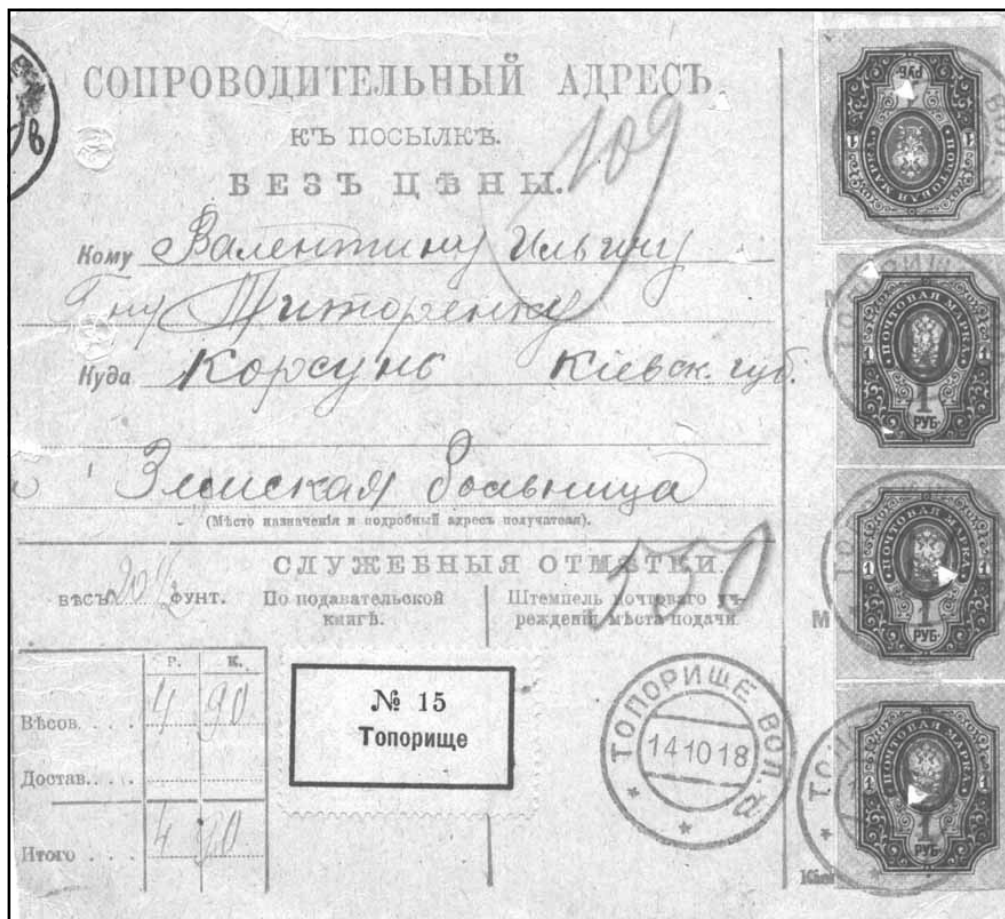 СОПРОВОДИТЕЛЬНЫЙ АДРЕСЪ
КЪ ПОСЫЛКѢ.
БЕЗЪ ЦѢНЫ.
109
Кому Валентину Ильичу
Гну Титоренку
Куда Корсунь Кіевск. губ.
Земская больница
(Мѣсто назначенія и подробный адресъ получателя).
СЛУЖЕБНЫЯ ОТМѢТКИ.
150
ВѢСЪ 20 1/2 ФУНТ.
По подавательской книгѣ.
Штемпель почтоваго учрежденія мѣста подачи
Р. К.
Вѣсов. . . . 4 90
Достав. . . .
Итого . . . 4 90
№ 15
Топорище
ТОПОРИЩЕ ВОЛ. Ф
14 10 18
РУБ.
1 1
ПОЧТОВАЯ МАРКА
ТОПОРИЩЕ
ПОЧТОВАЯ МАРКА
1 1
1
РУБ.
ПОЧТОВАЯ МАРКА
1 1
1
РУБ.
М
ПОЧТОВАЯ МАРКА
1 1
1
РУБ.